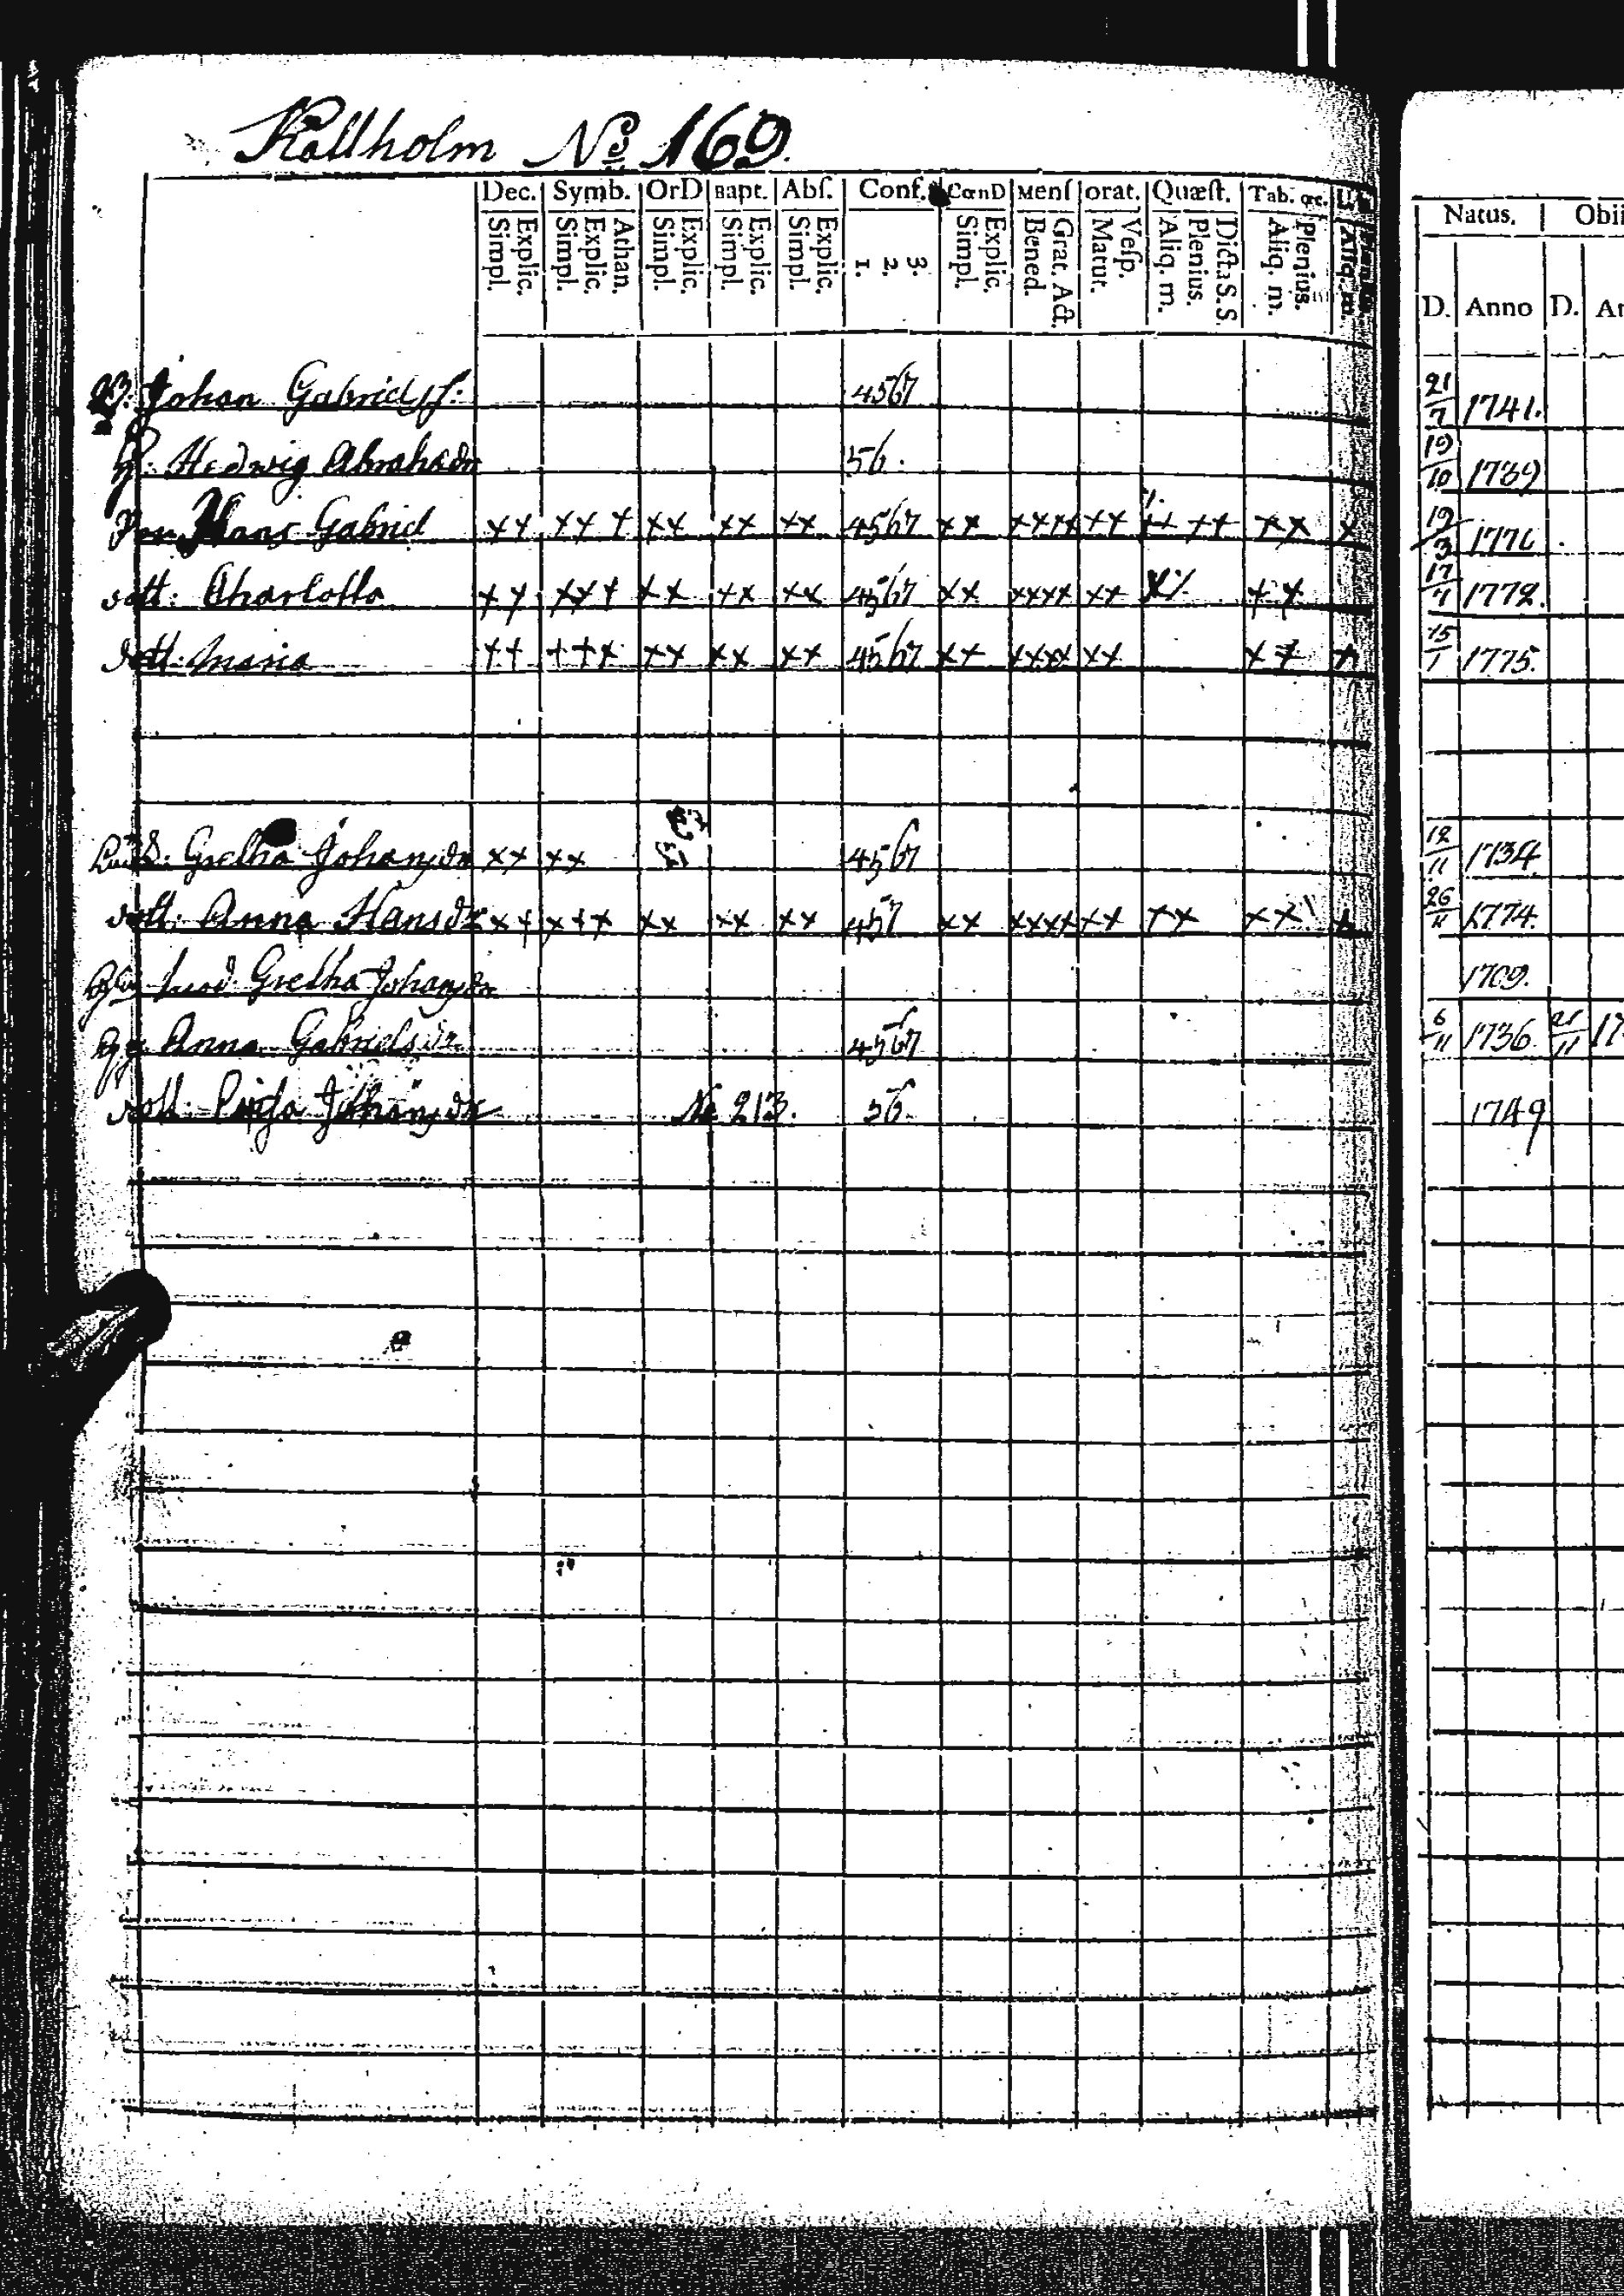 Kallholm No 169.
Dec. Symb. OrD Bapt. Abſ. Conf. CœnD Menſ orat. Quæſt. Tab. œc.
Explic. Simpl. Athan. Explic. Simpl. Explic. Simpl. Explic. Simpl. Explic. Simpl. 3. 2. 1. Explic. Simpl. Grat. Act. Bened. Veſp. Matut. Dicta S. S. Plenius. Aliq. m. Plenius. Aliq. m. Aliq. m.
Natus. Obii
D. Anno D. An
Johan Gabrielss: 4567 21/7 1741.
H: Hedwig Abrahadr 56. 19/10 1739
Son Hans Gabriel xx xxx xx xx xx 4567 xx xxxx xx xx xx xx x 19/3 1776
dott: Charlotta xx xxx xx xx xx 4567 xx xxxx xx x xx 17/4 1772.
dott: Maria xx xxx xx xx xx 4567 xx xxxx xx xx x 15/1 1775.
Gretha Johansdr xx xx 4567 12/11 1734.
dott: Anna Hansdr xx xxx xx xx xx 457 xx xxxx xx xx xx x 26/ 1774.
Gretha Johansdr 1709.
Anna Gabrielsdr 4567 6/11 1736 21/11 17
dott: Johansdr No 213. 56. 1749